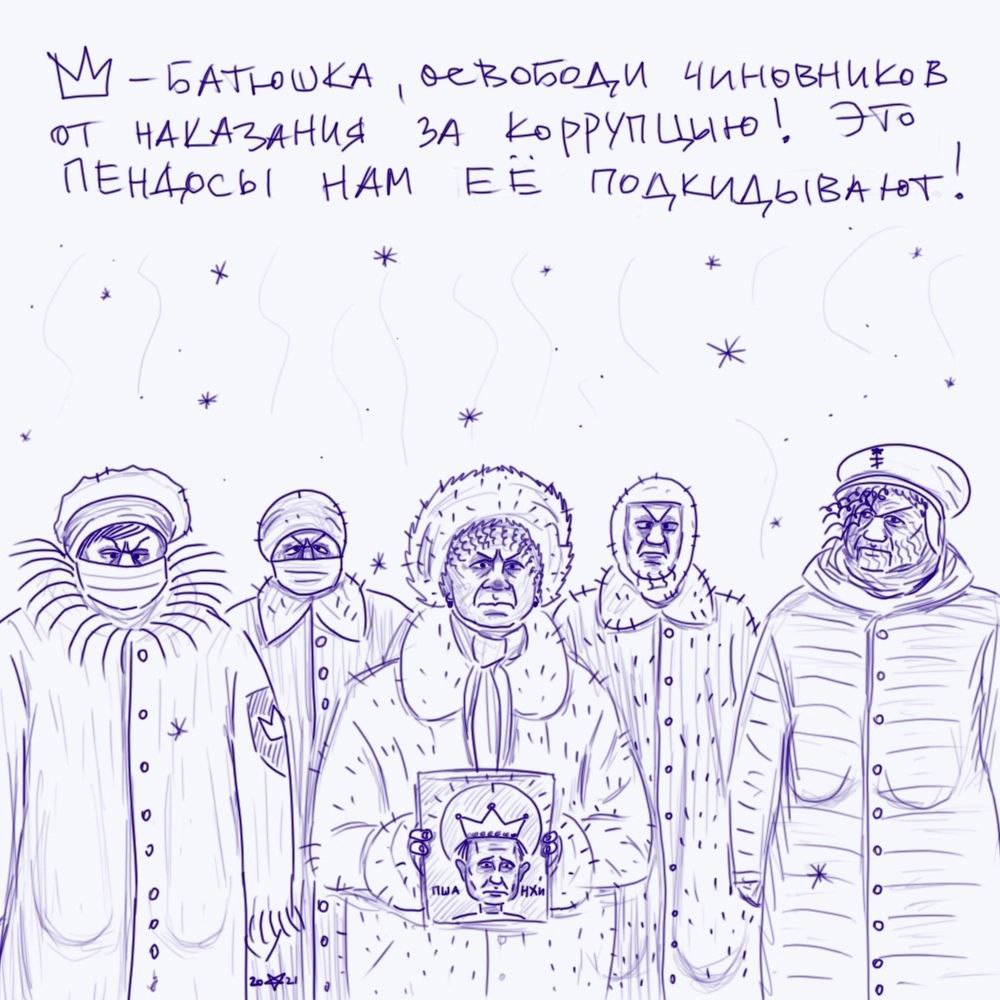 – БАТЮШКА, ОСВОБОДИ ЧИНОВНИКОВ
ОТ НАКАЗАНИЯ ЗА КОРРУПЦЫЮ! ЭТО
ПЕНДОСЫ НАМ ЕЁ ПОДКИДЫВАЮТ!
ПША НХЙ
20 21